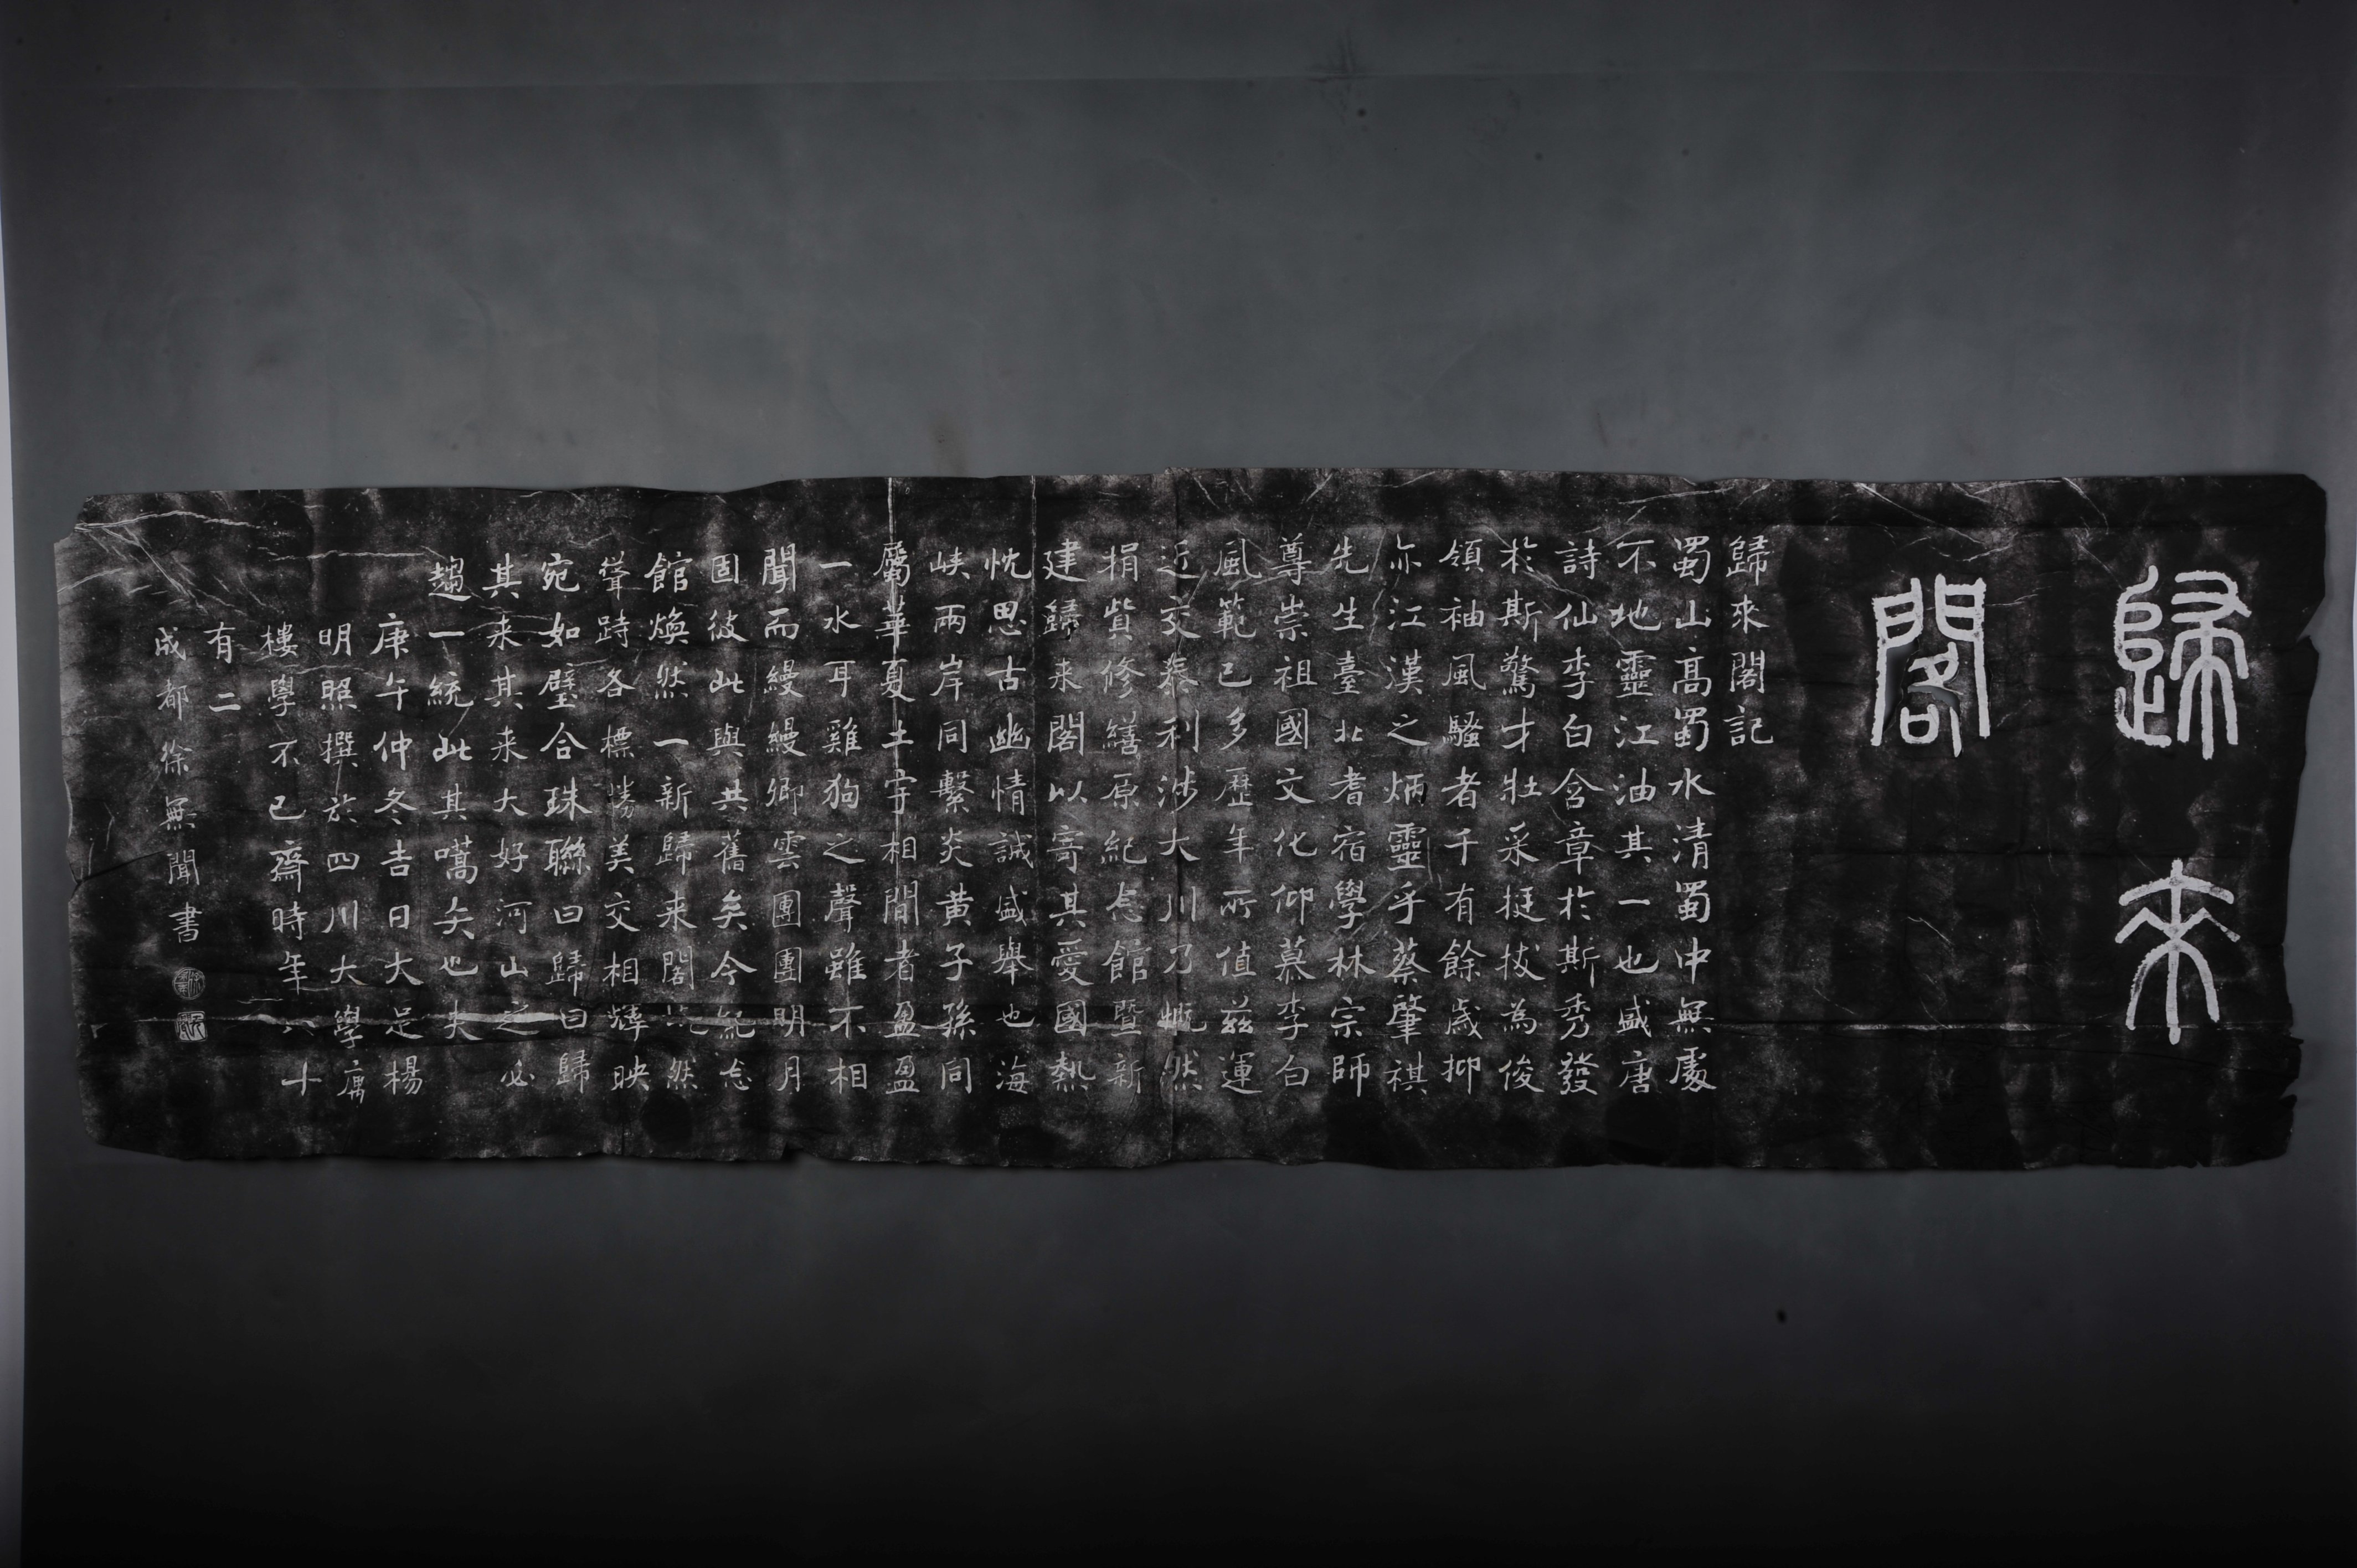 歸來
閣
歸來閣記
蜀山高蜀水清蜀中無處
不地靈江油其一也盛唐
詩仙李白含章於斯秀發
於斯驚才壯采挺拔為俊
領袖風騷者千有餘歲抑
亦江漢之炳靈乎蔡肇祺
先生臺北耆宿學林宗師
尊崇祖國文化仰慕李白
風範已多歷年所值茲運
近交泰利涉大川乃慨然
捐貲修繕原紀念館暨新
建歸来閣以寄其愛國熱
忱思古幽情誠盛舉也海
峽兩岸同繫炎黃子孫同
屬華夏土宇相間者盈盈
一水耳雞狗之聲雖不相
聞而縵縵卿雲團團明月
固彼此與共舊矣今紀念
館煥然一新歸来閣屹然
聳跱各標勝美交相輝映
宛如璧合珠聯曰歸曰歸
其来其来大好河山之必
趨一統此其嚆矢也夫
庚午仲冬吉日大足楊
明照撰於四川大學寓
樓學不已齋時年八十
有二
成都徐無聞書